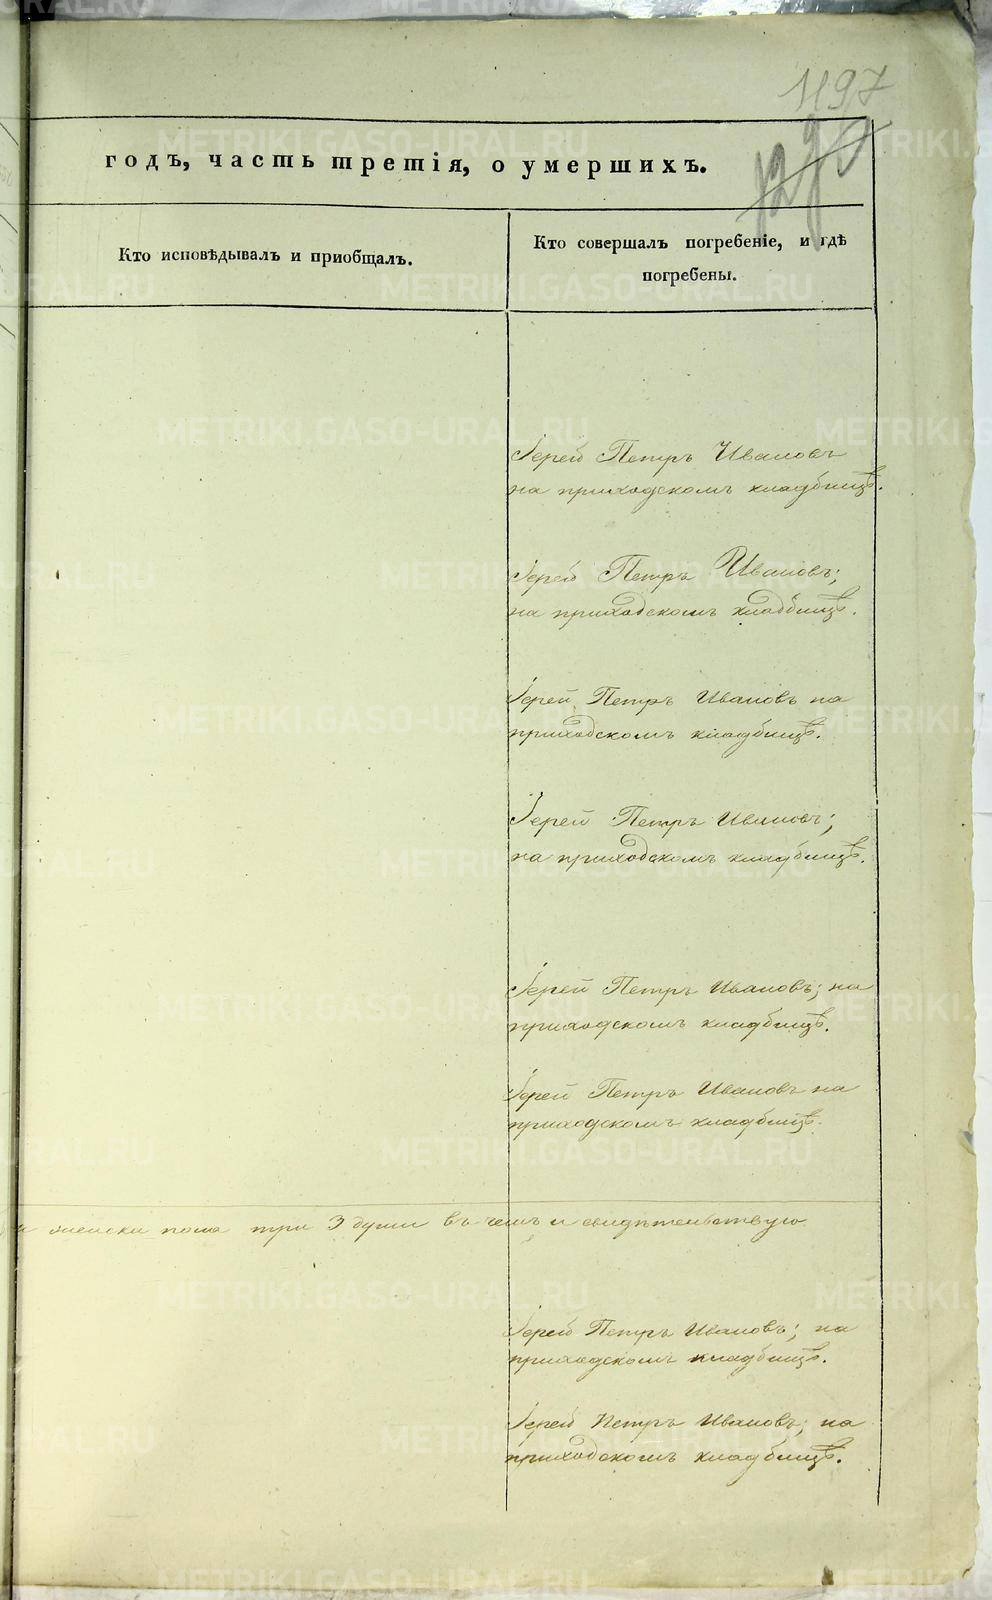 1197
годъ, часть третія, о умершихъ.
Кто исповѣдывалъ и приобщалъ.
Кто совершалъ погребеніе, и гдѣ
погребены.
Іерей Петръ Ивановъ
на приходскомъ кладбищѣ.
Іерей Петръ Ивановъ;
на приходскомъ кладбищѣ.
Іерей Петръ Ивановъ на
приходскомъ кладбищѣ.
Іерей Петръ Ивановъ;
на приходскомъ кладбищѣ.
Іерей Петръ Ивановъ; на
приходскомъ кладбищѣ.
Іерей Петръ Ивановъ на
приходскомъ кладбищѣ.
и женска пола три 3 души въ чемъ и свидѣтельствую
Іерей Петръ Ивановъ; на
приходскомъ кладбищѣ.
Іерей Петръ Ивановъ; на
приходскомъ кладбищѣ.
METRIKI.GASO-URAL.RU